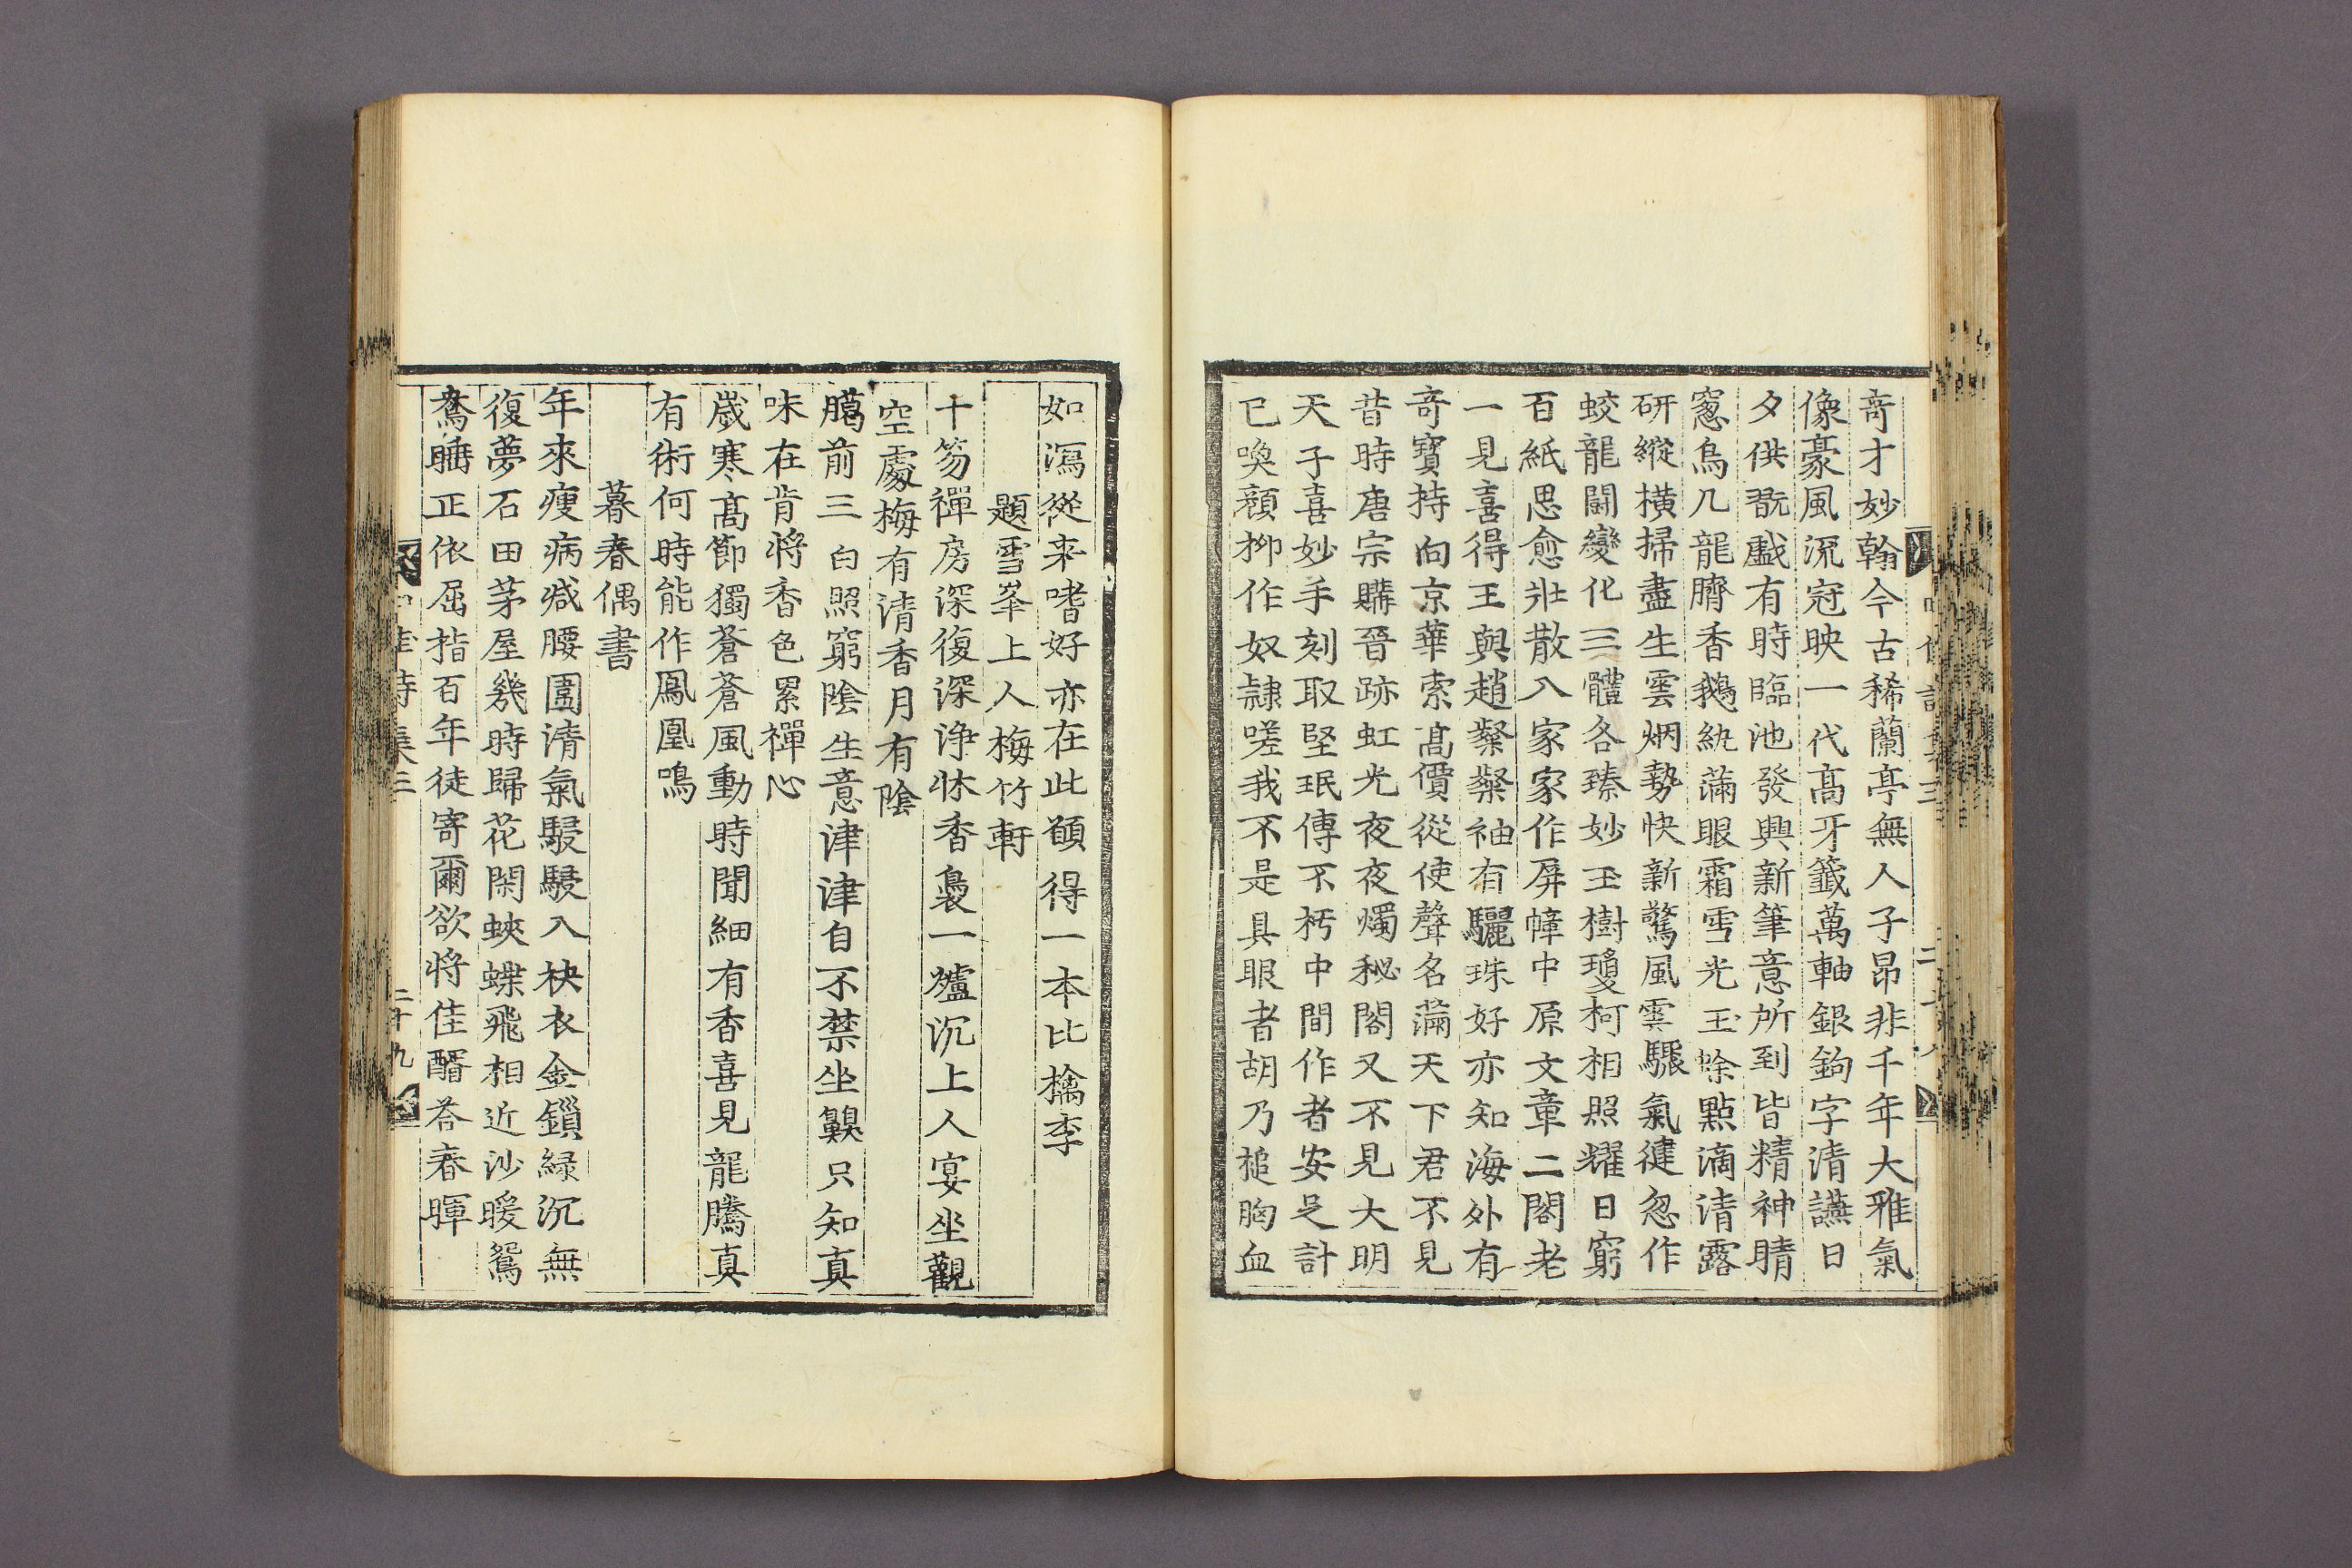 奇才妙翰今古稀蘭亭無人子昂非千年大雅氣
像豪風流冠映一代髙牙籤萬軸銀鉤字清讌日
夕供翫戱有時臨池發興新筆意所到皆精神晴
窻烏几龍臍香鵝紈滿眼霜雪光玉蜍點滴清露
研縱橫掃盡生雲烟勢快新驚風雲驟氣健忽作
蛟龍鬪變化三體各臻妙玉樹瓊柯相照耀日窮
百紙思愈壯散入家家作屏幛中原文章二閣老
一見喜得王與趙粲粲袖有驪珠好亦知海外有
奇寶持向京華索髙價從使聲名滿天下君不見
昔時唐宗購晉跡虹光夜夜燭秘閣又不見大明
天子喜妙手刻取堅珉傳不朽中間作者安足計
已喚顔柳作奴隷嗟我不是具眼者胡乃搥胸血
如瀉從来嗜好亦在此願得一本比擒李
題雪峯上人梅竹軒
十笏禪房深復深浄牀香裊一爐沉上人宴坐觀
空處梅有清香月有陰
臈前三白照窮陰生意津津自不禁坐齅只知真
味在肯將香色累禪心
歲寒髙節獨蒼蒼風動時聞細有香喜見龍騰真
有術何時能作鳳凰鳴
暮春偶書
年來瘦病减腰圍淸氣駸駸入袂衣金鎖緑沉無
復夢石田茅屋幾時歸花閑蛺蝶飛相近沙暖鴛
鴦睡正依屈指百年徒寄爾欲將佳醑荅春暉
二十九